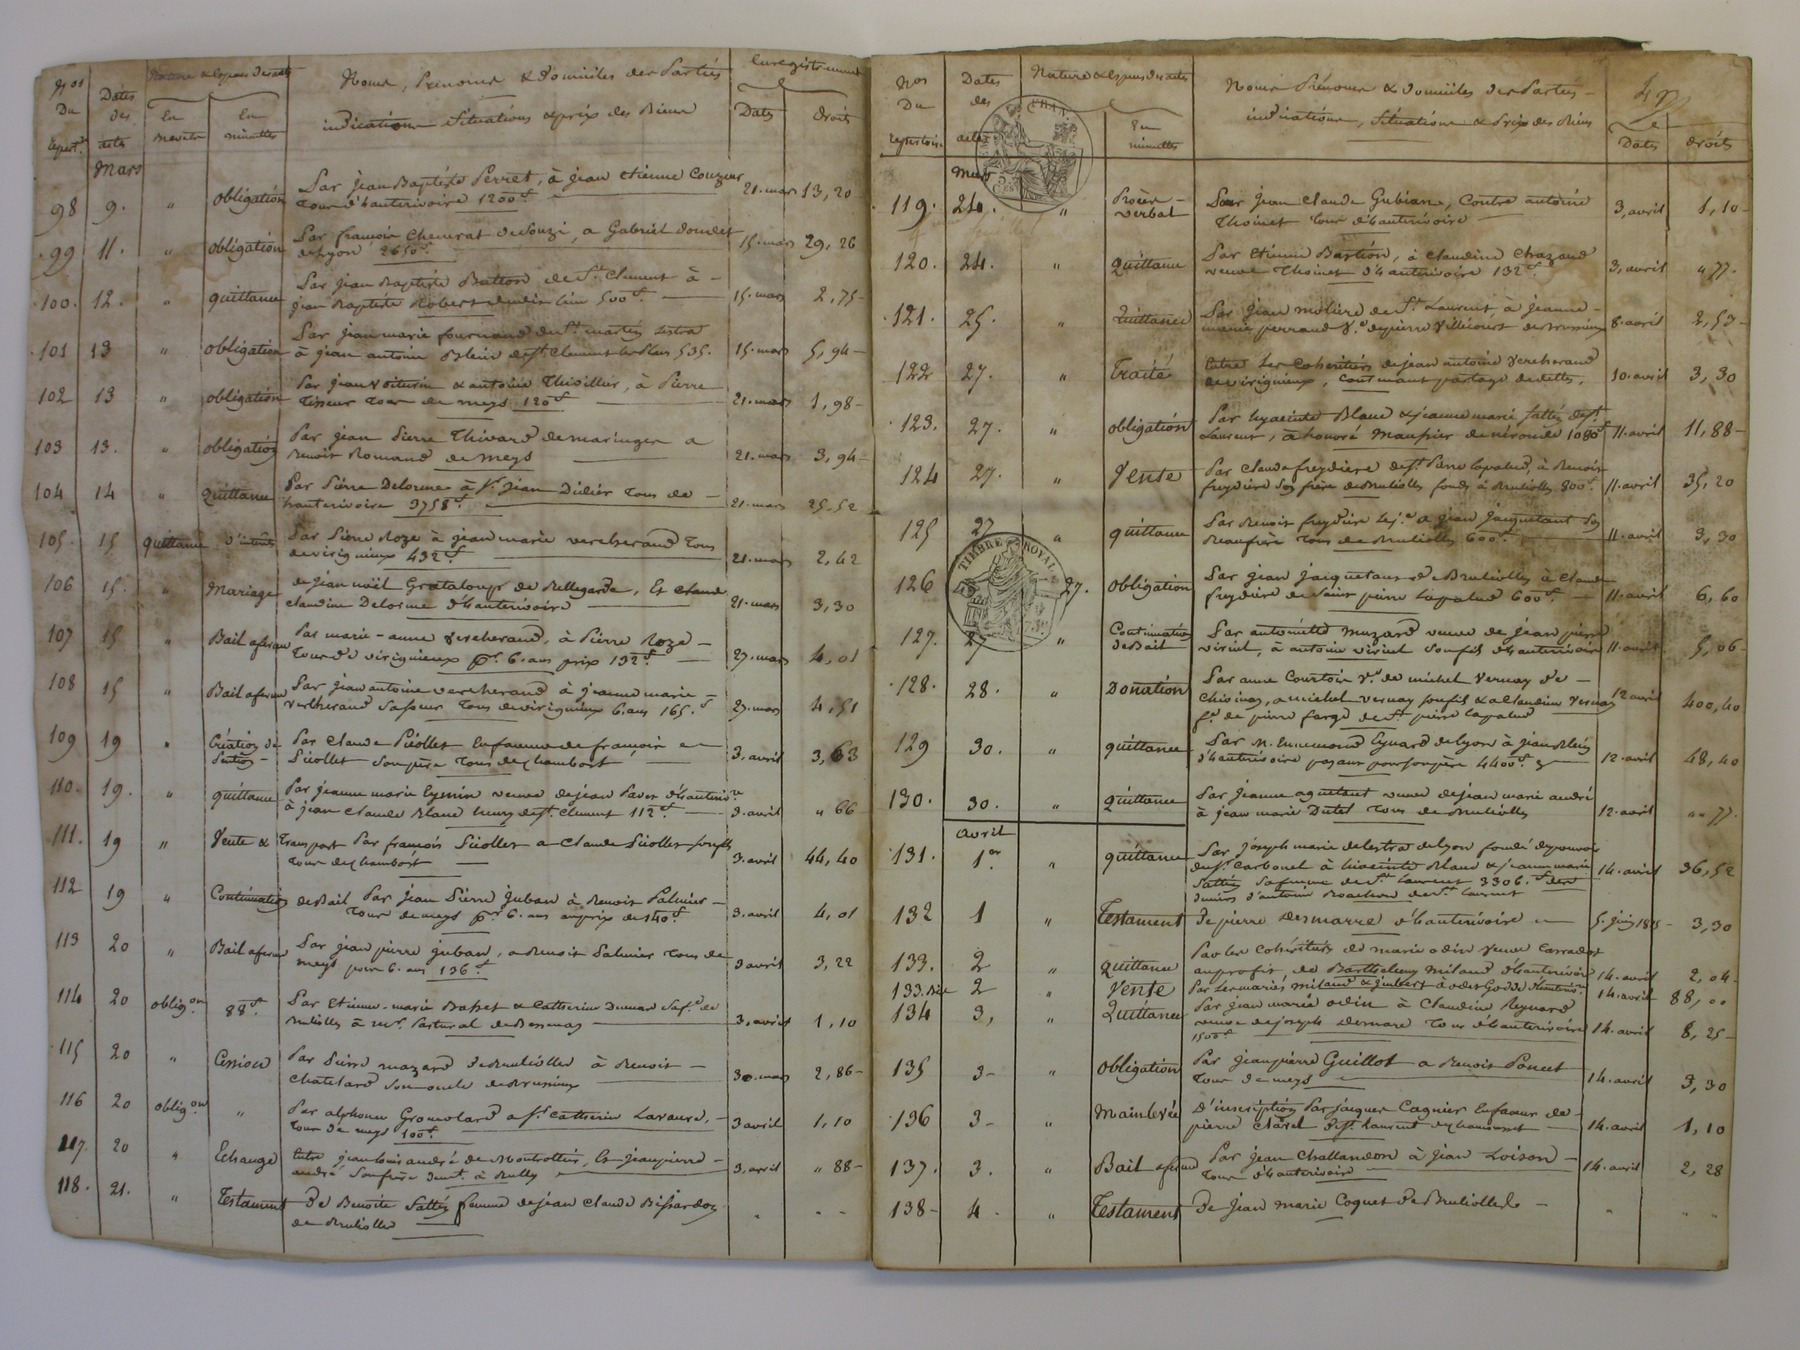 Nos Du Répert.re
Dates des actes
Nature & Espèces des actes
En brevets
En minuttes
Noms, Prénoms & domiciles des Parties
indications Situations & prix des Biens
Enregistrement
Dates
droits
Mars
98 9. " obligation Par jean Baptiste Perret, à jean etienne Couzeur 21. mars 13, 20
Tous d'hauterivoire 1200f
99 11. " obligation Par françois Chemerat de Souzi, a Gabriel 15. mars 29, 26
de Lyon 2650f
100. 12. " quittance Par jean Baptiste de St. Clement à 15. mars 2, 75
jean Baptiste Robert dudit lieu 500f
101 13 " obligation Par jean marie fournand de St. martin Lestra
à jean antoine Blein de St. Clement les Places 535. 15. mars 5, 94
102 13 " obligation Par jean Voiturin & antoine Thivillier, à Pierre
Tisseur Tous de meys 120f 21. mars 1, 98
103 13. " obligation Par jean Pierre Thivard de maringes a
Benoit Romand de Meys 21. mars 3, 94
104 14 " quittance Par Pierre Delorme à St. Jean Didier Tous de
hauterivoire 3758f 21. mars 25, 52
105. 15 quittance d'intérêts Par Pierre Roze à jean marie vercherand Tous
de virigneux 432f 21. mars 2, 42
106 15. " Mariage de jean noël Grataloup de Bellegarde, Et Claudine
claudine Delorme d'hauterivoire 21. mars 3, 30
107 15 " Bail a ferme Par marie-anne Vercherand, à Pierre Roze
Tous de virigneux pr. 6. ans prix 132f 27. mars 4, 01
108 15 " Bail a ferme Par jean antoine vercherand à jeanne marie
vercherand sa soeur Tous de virigneux 6. ans 165.f 27. mars 4, 51
109 19 " Création de Pension Par Claude Piollet En faveur de françois
Piollet son père Tous de chambost 3. avril 3, 63
110. 19. " quittance Par jeanne marie Eymin veuve de jean Pavet d'hauterivre
à jean claude Blanc de St. Clement 112f 3. avril " 66
111. 19 " Vente & Transport Par françois Piollet a Claude Piollet son fils
Tous de chambost 3. avril 44, 40
112 19 " Continuation de Bail Par jean Pierre juban à Benoit Palmier
Tous de meys pr 6. ans au prix de 140f 3. avril 4, 01
113 20 " Bail a ferme Par jean pierre juban, a Benoit Palmier Tous de
meys pour 6. ans 136f 3 avril 3, 22
114 20 oblig.on 88f. Par etienne-marie Basset & Catherine Dumas sa fe de
Brulioles à Mr. Pastural de Bessenay 3. avril 1, 10
115 20 " Cession Par Pierre mazard de Brulioles à Benoit
Chatelard son oncle de Brussieux 30. mars 2, 86
116 20 oblig.on " Par alphonse a St. Catherin Lavaure,
Tous de meys 100f. 3 avril 1, 10
117. 20 " Echange Entre jean louis andré de Montrottier, Et jean pierre
andré son frère demt. à 3. avril " 88
118. 21. " Testament de Benoite Sattin femme de jean Claude Bissardon
de Brulioles
Nos Du répertoire
Dates des actes
Nature & Espèces des actes
En minuttes
Noms Prénoms & domiciles des Parties
indications, Situations & Prix des Biens
Dates
droits
TIMBRE ROYAL
Mars
119. 24. " Procès-verbal Par Jean Claude Gubian, Contre antoine
Thoinet Tous d'hauterivoire 3. avril 1, 10
120. 24. " quittance Par etienne Bastion, à Claudine Chazaud
veuve Thoinet d'hauterivoire 132f 3, avril " 77.
121. 25. " quittance Par jean molière de St. Laurent, à jeanne
marie perrand Ve de pierre Villecourt de brussieux 8. avril 2, 53
122 27. " Traité Entre Les Cohéritiers de jean antoine Vercherand
de virigneux, Contenant partage de dettes, 10. avril 3, 30
123. 27. " obligation Par hyacinte Blanc & jeanne marie Sattin de St.
Laurent, à honoré Maussier de néronde 1080f 11. avril 11, 88
124 27. " Vente Par Claude freydière de St. Pierre lapalud, à Benoit
freydière son frère de Brulioles fonds à Brulioles 800f. 11. avril 35, 20
125 27 " quittance Par Benoit freydière a jean jacquetant son
Beaufrère Tous de Brulioles 600f 11. avril 3, 30
126 27. " obligation Par jean jacquetant de Brulioles à Claude
freydière de Saint pierre lapalud 600f. 11. avril 6, 60
127. 27 " Continuation de Bail Par antoinette muzard veuve de jean pierre
viricel, à antoine viricel son fils d'hauterivoire 11. avril 5, 06
128. 28. " Donation Par anne Courtois Ve de michel Vernay de
a michel vernay son fils & a Claudine Vernay 12 avril 400, 40
fe de pierre farge de St. pierre lapalud
129 30. " quittance Par M. Ennemond Eynard de Lyon à jean Blein
d'hauterivoire payant pour son père 4400f 12. avril 48, 40
130. 30. " quittance Par Jeanne aguetant veuve de jean marie andré
à jean marie Dutel Tous de Brulioles 12. avril " 77.
avril
131. 1er " quittance Par joseph marie delestra de Lyon fondé de pouvoir
de St. Carbonel à hiacinte Blanc & jeanne marie 14. avril 36, 52
Sattin sa femme de St. Laurent 3306.f des
deniers d'antoine de St. Laurent
132 1 " Testament de pierre Desmarre d'hauterivoire 5. juin 1825 3, 30
133. 2 " quittance Par les Cohéritiers de marie odin veuve
au profit, de Barthelemy Milaud d'hauterivoire 14. avril 2, 04
133. Bis 2 " Vente Par Les mariés Milaud & jimbert à d'hauterivre 14. avril 88, 00
134 3, " Quittance Par jean marie odin à Claudine Reynard
veuve de joseph Tous d'hauterivoire 14. avril 8, 25
1500f
135 3 " obligation Par jean pierre Guillot a Benoit Poncet
Tous de meys 14. avril 3, 30
136 3 " Mainlevée d'inscription Par jacques Cagnier En faveur de
pierre Clavel de St. Laurent de chamousset 14. avril 1, 10
137. 3. " Bail a ferme Par jean Challandon à jean Loison
Tous d'hauterivoire 14. avril 2, 28
138 4 " Testament de jean marie Coquet de Brulioles